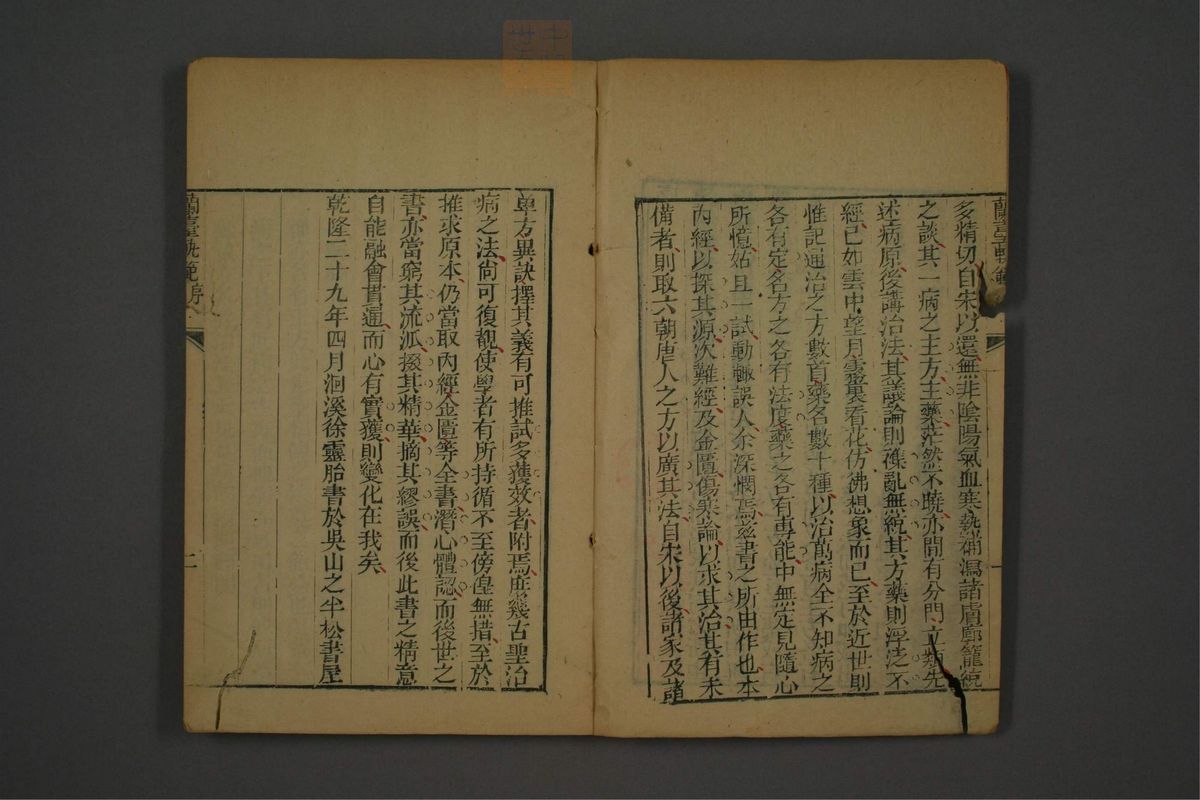 蘭臺軌範
多精切自宋以還無非陰陽氣血寒熱補瀉諸膚廓籠統
之談其一病之主方主藥茫然不曉亦間有分門立類先
述病原後講治法其議論則雜亂無統其方藥則浮泛不
經已如雲中望月霧裏看花仿彿想象而已至於近世則
惟記通治之方數首藥名數十種以治萬病全不知病之
各有定名方之各有法度藥之各有專能中無定見隨心
所憶姑且一試動輒誤人余深憫焉茲書之所由作也本
內經以探其源次難經及金匱傷寒論以求其治其有未
備者則取六朝唐人之方以廣其法自宋以後諸家及諸
單方異訣擇其義有可推試多獲效者附焉庶幾古聖治
病之法尙可復覩使學者有所持循不至傍偟無措至於
推求原本仍當取內經金匱等全書潛心體認而後世之
書亦當窮其流派掇其精華摘其繆誤而後此書之精意
自能融會貫通而心有實獲則變化在我矣
乾隆二十九年四月洄溪徐靈胎書於吳山之半松書屋
蘭臺軌範序
二